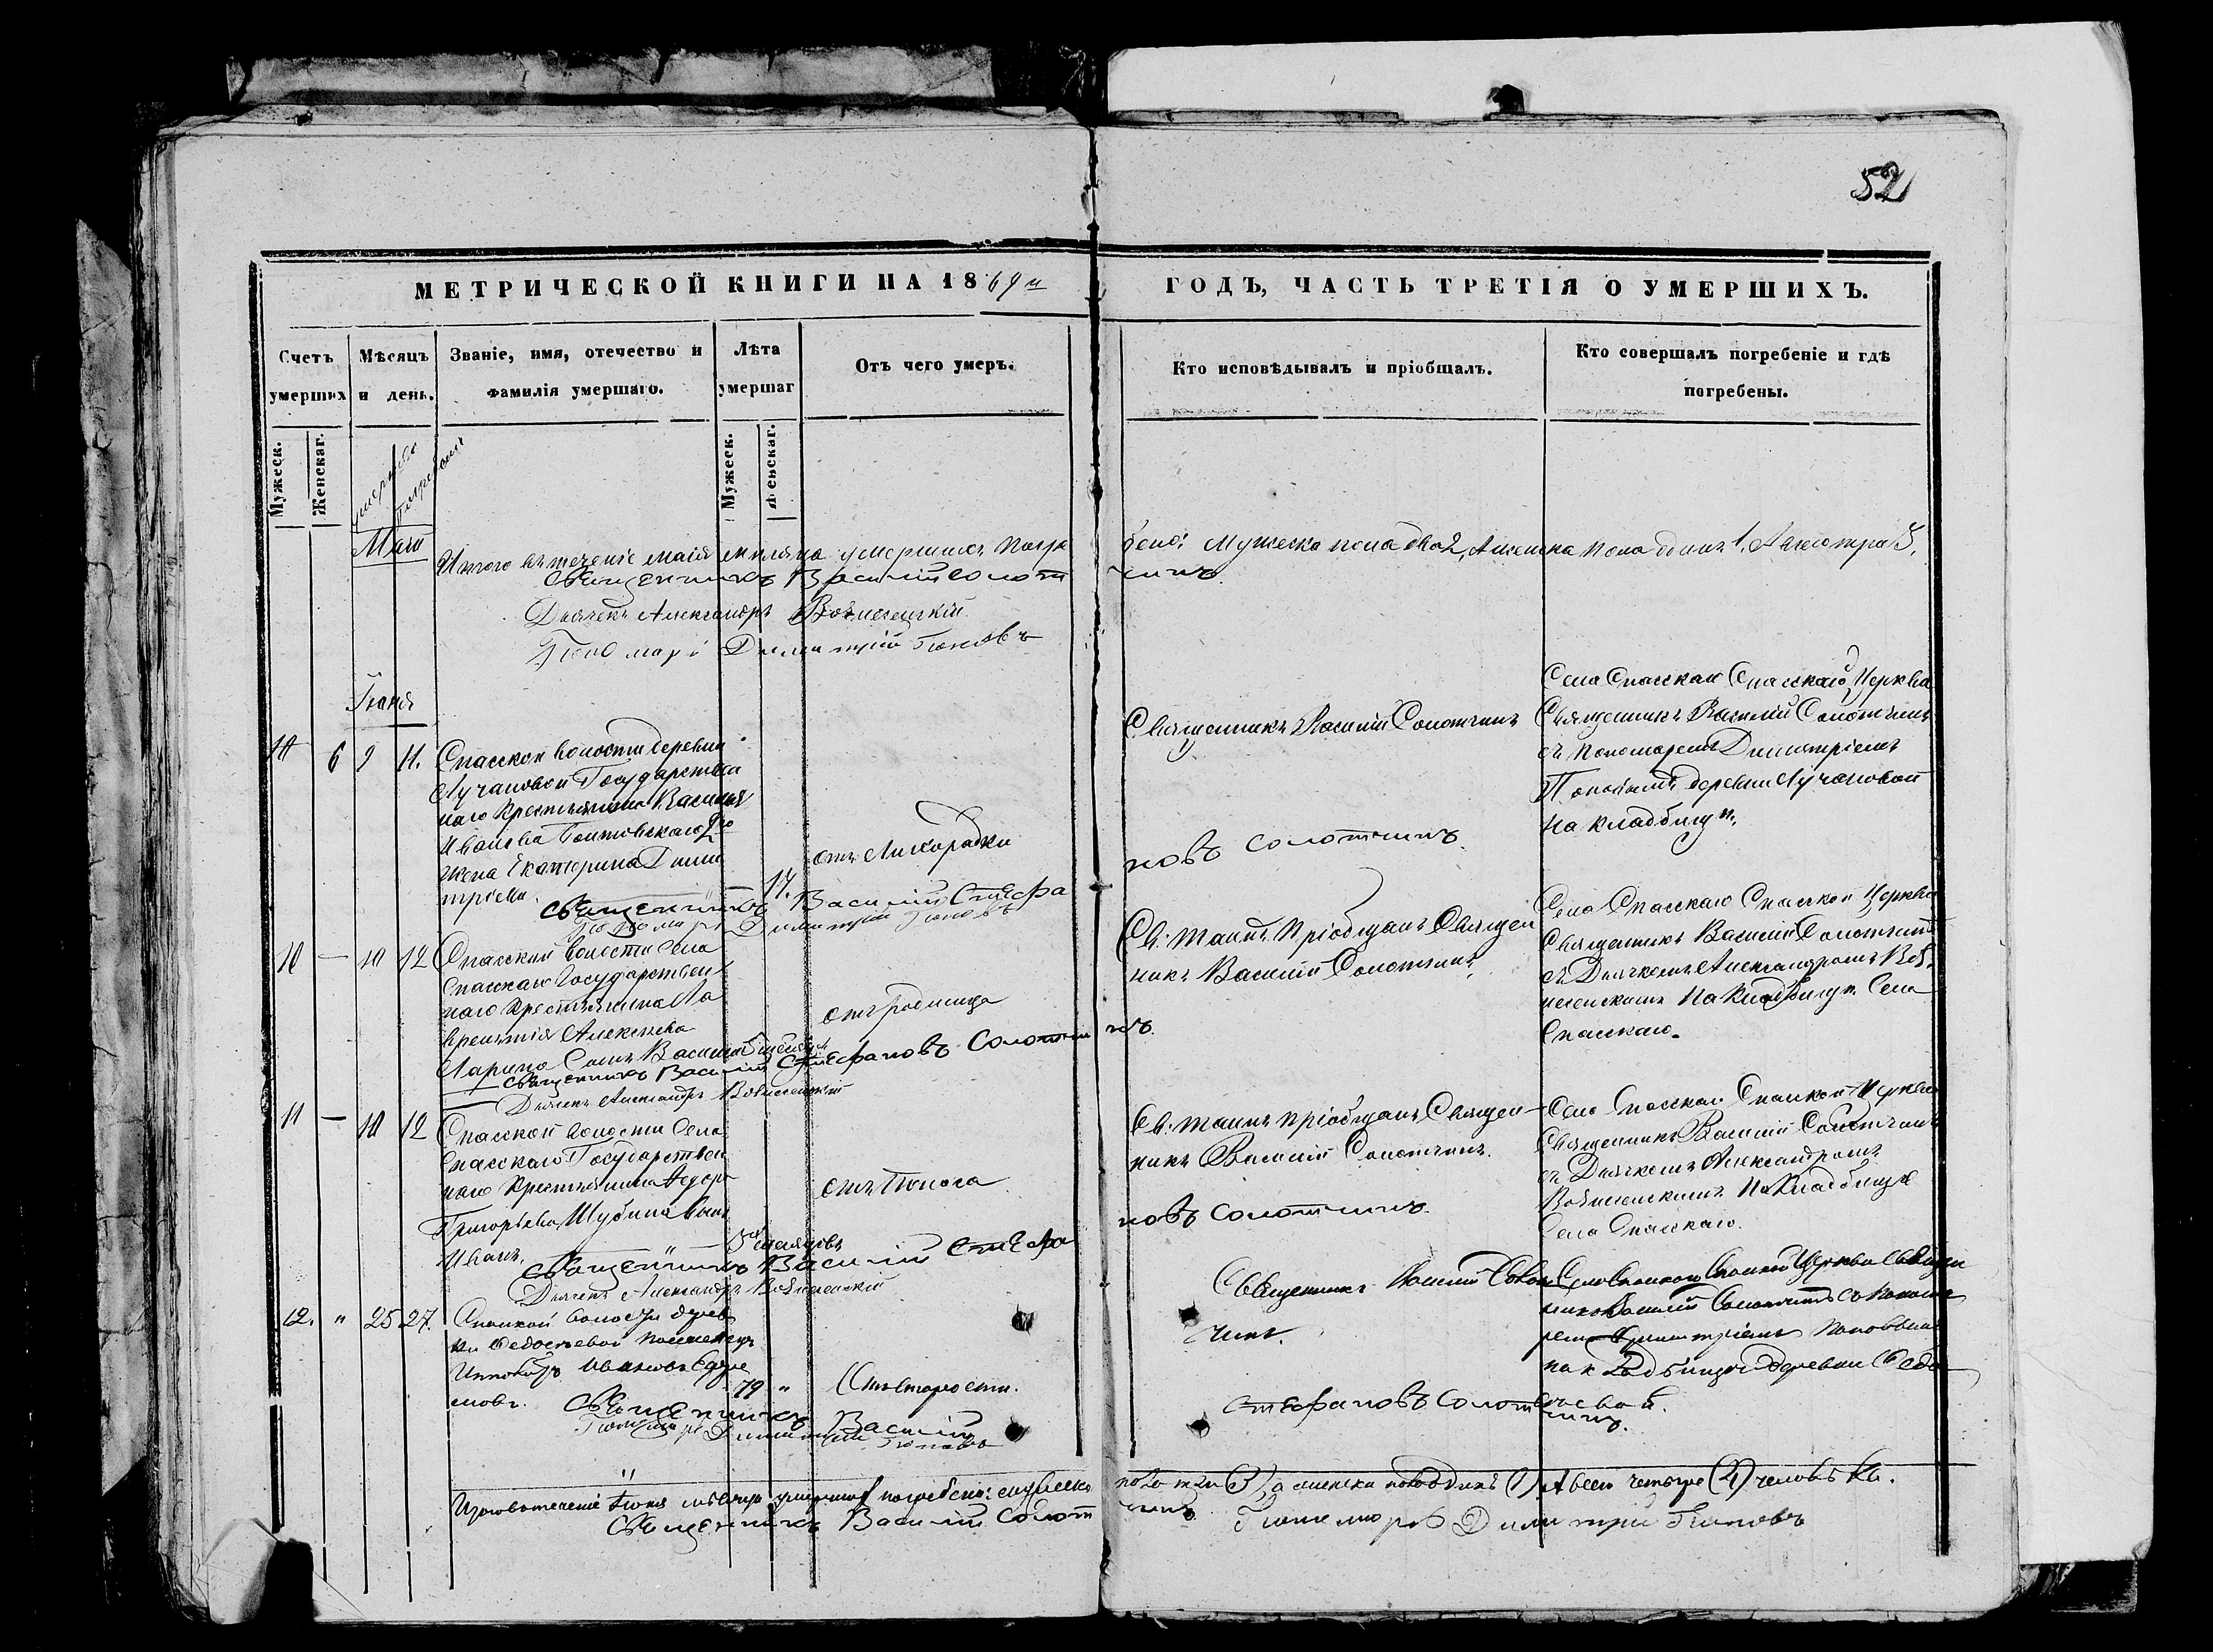 52
МЕТРИЧЕСКОЙ КНИГИ НА 1869 й
ГОДЪ, ЧАСТЬ ТРЕТІЯ О УМЕРШИХЪ.
Счетъ умерших
Мѣсяцъ и день.
Званіе, имя, отечество и фамилія умершаго.
Лѣта умершаг
Отъ чего умеръ.
Кто исповѣдывалъ и пріобщалъ.
Кто совершалъ погребеніе и гдѣ погребены.
Мужеск.
Женскаг.
Мужеск.
Женскаг.
Маія
Итого въ теченіе маія месяца умершихъ погре
бено: Мужеска пола два 2, А женска пола одинъ 1. А всего три 3.
Священникъ Василій Солот
чинъ.
Дьячекъ Александръ Вознесенскій
Пономарь Димитрій Поповъ
Іюня
6 9 11.
Спасской волости деревни
Лучановой Государствен
наго Крестьянина Василья
Иванова
жена Екатерина Дими
тріева.
17.
отъ Лихорадки
Священникъ Василій Солотчинъ
Села Спасскаго Спасскаго Церкви
Священникъ Василій Солотчинъ
съ пономаремъ Димитріемъ
Поповымъ деревни Лучановой
на кладбищѣ.
Священникъ Василій Стефа
новъ Солотчинъ.
Пономарь Димитрій Поповъ
10 — 10 12
Спасской волости Села
Спасскаго Государствен
наго Крестьянина Ла
врентія Алексѣева
Ларина Сынъ Василій
отъ родимца
Св. Таинъ Пріобщалъ Священ
никъ Василій Солотчинъ
Села Спасскаго Спасской Церкви
Священникъ Василій Солотчинъ
съ Дьячкомъ Александромъ Воз
несенскимъ На Кладбищѣ Села
Спасскаго.
Священникъ Василій Стефановъ Солотчи
нъ.
Дьячекъ Александръ Вознесенскій
11 — 10 12
Спасской волости Села
Спасскаго Государствен
наго Крестьянина Ѳедора
Григорьева Шубина сынъ
Иванъ.
месяцовъ
отъ Поноса
Св. Таинъ пріобщалъ Священ
никъ Василій Солотчинъ.
Села Спасскаго Спасской Церкви
Священникъ Василій Солотчинъ
съ Дьячкомъ Александромъ
Вознесенскимъ На Кладбищѣ
Села Спасскаго.
Священникъ Василій Стефа
новъ Солотчинъ.
Дьячекъ Александръ Вознесенскій
12. " 25 27.
Спасской волости дерев
ни Федосеевой поселенецъ
Ивановъ
79 "
Отъ старости.
Священникъ Василій Солот
чинъ.
Села Спасскаго Спасской Церкви Священ
никъ Василій Солотчинъ со понома
ремъ Димитріемъ Поповымъ
на кладбищѣ деревни Федо
сеевой.
Священникъ Василій
Стефановъ Солотчинъ.
Пономарь Димитрій Поповъ
Итого въ теченіе Іюня мѣсяца умершихъ погребено: мужеска
пола три (3), а женска пола одинъ (1) А всего четыре (4) человѣка.
Священникъ Василій Солот
чинъ
Пономарь Димитрій Поповъ